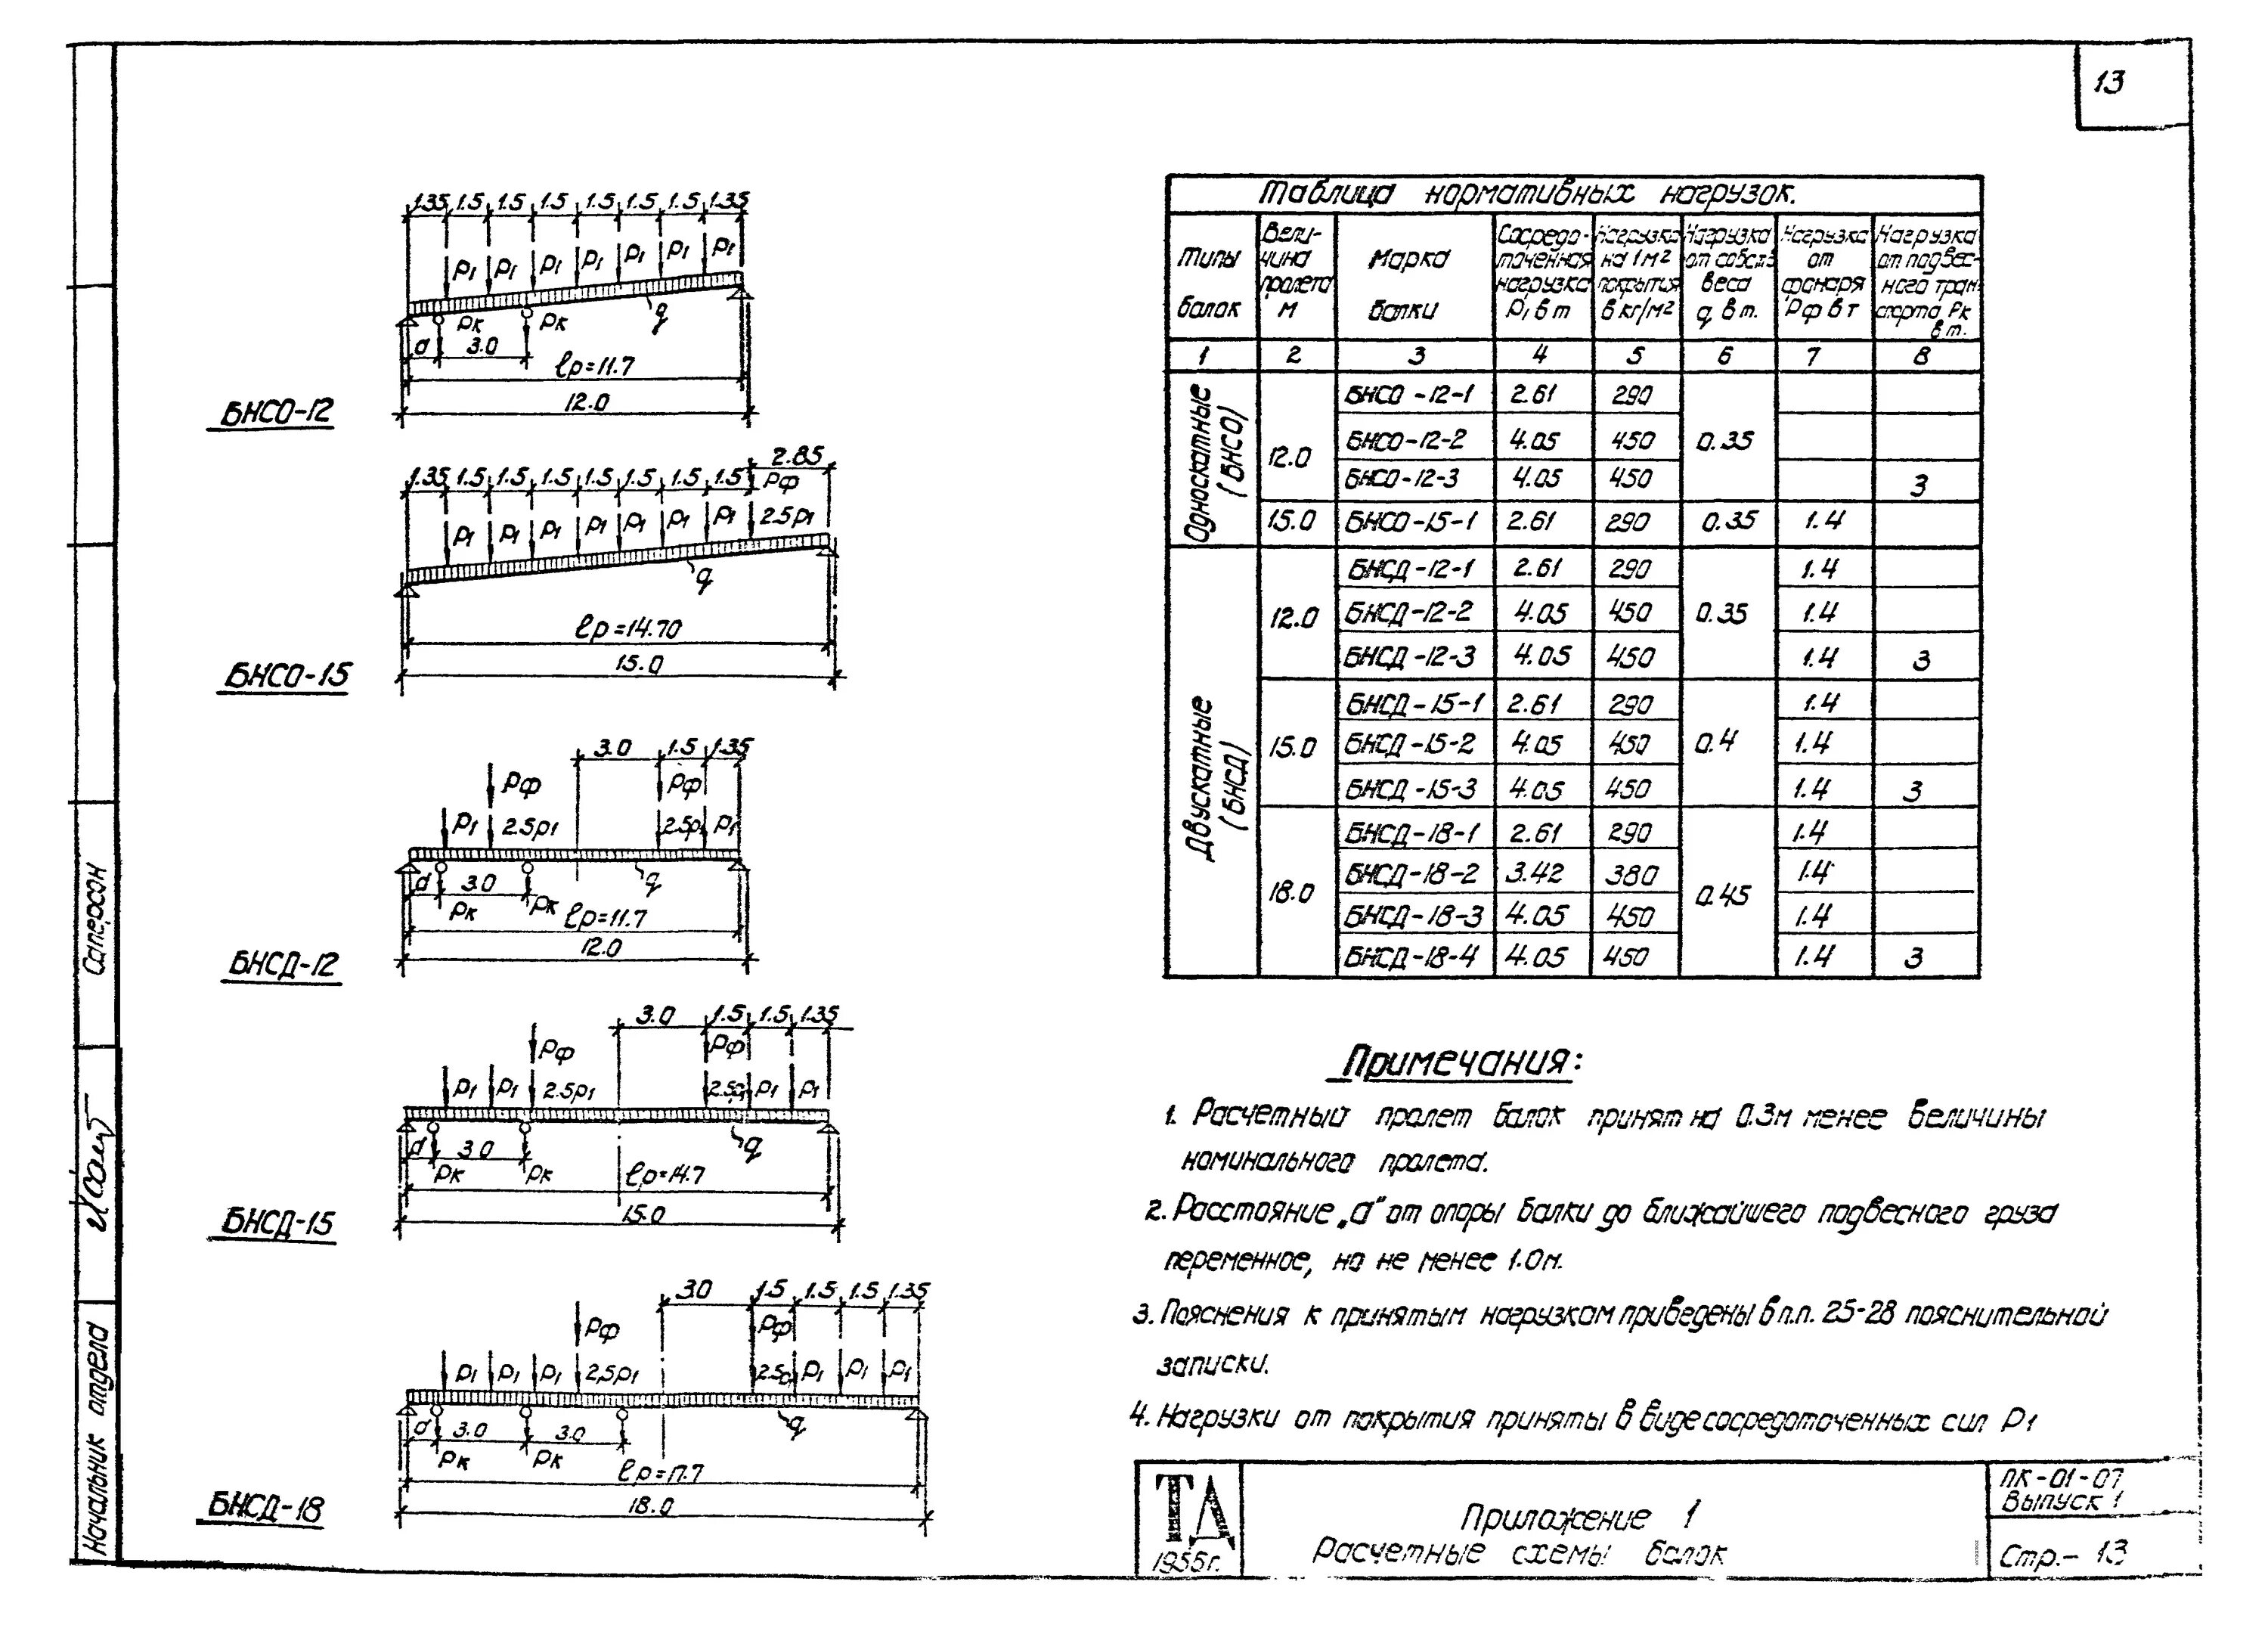 13
1.35 1.5 1.5 1.5 1.5 1.5 1.5 1.35
P1 P1 P1 P1 P1 P1 P1
q
Pк Pк
a 3.0
ℓр=11.7
12.0
БНСО-12
2.85
1.35 1.5 1.5 1.5 1.5 1.5 1.5 1.5 Pф
P1 P1 P1 P1 P1 P1 P1 2.5P1
q
ℓр=14.70
15.0
БНСО-15
3.0 1.5 1.35
Pф Pф
P1 2.5P1 2.5P1 P1
a 3.0 q
Pк Pк
ℓр=11.7
12.0
БНСД-12
3.0 1.5 1.5 1.35
Pф Pф
P1 P1 2.5P1 P1 P1
a 3.0 q
Pк Pк
ℓр=14.7
15.0
БНСД-15
3.0 1.5 1.5 1.5 1.35
Pф Pф
P1 P1 P1 2,5P1 P1 P1 P1
a 3.0 3.0 q
Pк Pк
ℓр=17.7
18.0
БНСД-18
Таблица нормативных нагрузок.
Типы балок
Вели-
чина
пролета
м
Марка балки
Сосредо-
точенная
нагрузка
P1 в т
Нагрузка
на 1м²
покрытия
в кг/м²
Нагрузка
от собств
веса
q в т.
Нагрузка
от
фонаря
Pф в т
Нагрузка
от подвес-
ного тран-
спорта Pк
в т.
1 2 3 4 5 6 7 8
Односкатные
(БНСО)
12.0
БНСО-12-1 2.61 290
БНСО-12-2 4.05 450 0.35
БНСО-12-3 4.05 450 3
15.0 БНСО-15-1 2.61 290 0.35 1.4
Двускатные
(БНСД)
БНСД-12-1 2.61 290 1.4
12.0 БНСД-12-2 4.05 450 0.35 1.4
БНСД-12-3 4.05 450 1.4 3
БНСД-15-1 2.61 290 1.4
15.0 БНСД-15-2 4.05 450 0.4 1.4
БНСД-15-3 4.05 450 1.4 3
БНСД-18-1 2.61 290 1.4
БНСД-18-2 3.42 380 1.4
18.0 БНСД-18-3 4.05 450 0.45 1.4
БНСД-18-4 4.05 450 1.4 3
Примечания:
1. Расчетный пролет балок принят на 0.3м менее величины
номинального пролета.
2. Расстояние „а" от опоры балки до ближайшего подвесного груза
переменное, но не менее 1.0м.
3. Пояснения к принятым нагрузкам приведены в п.п. 25-28 пояснительной
записки.
4. Нагрузки от покрытия приняты в виде сосредоточенных сил P1
ТА
1955г.
Приложение 1
Расчетные схемы балок
ПК-01-07
Выпуск 1
Стр.- 13
Начальник отдела
Саперсон